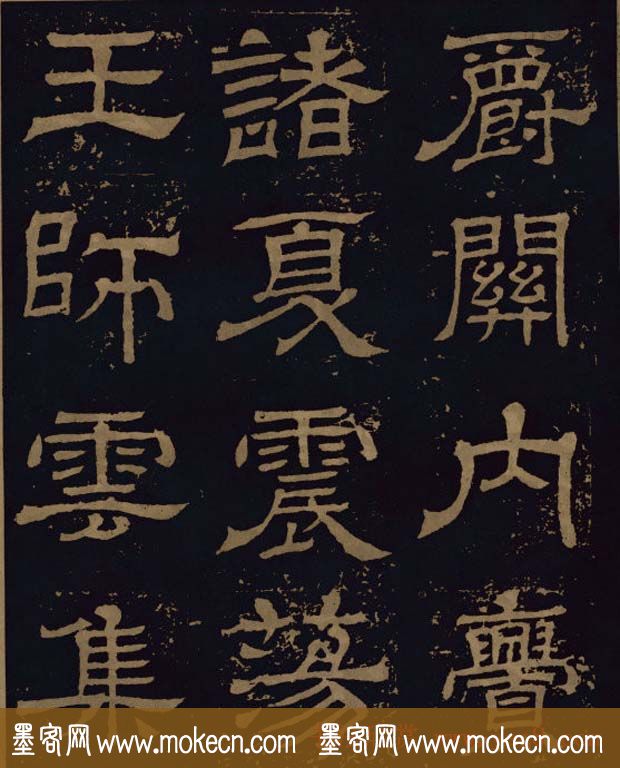 爵關內
諸夏震蕩
王師雲集
墨客网 www.mokecn.com 墨客网 www.mokecn.com